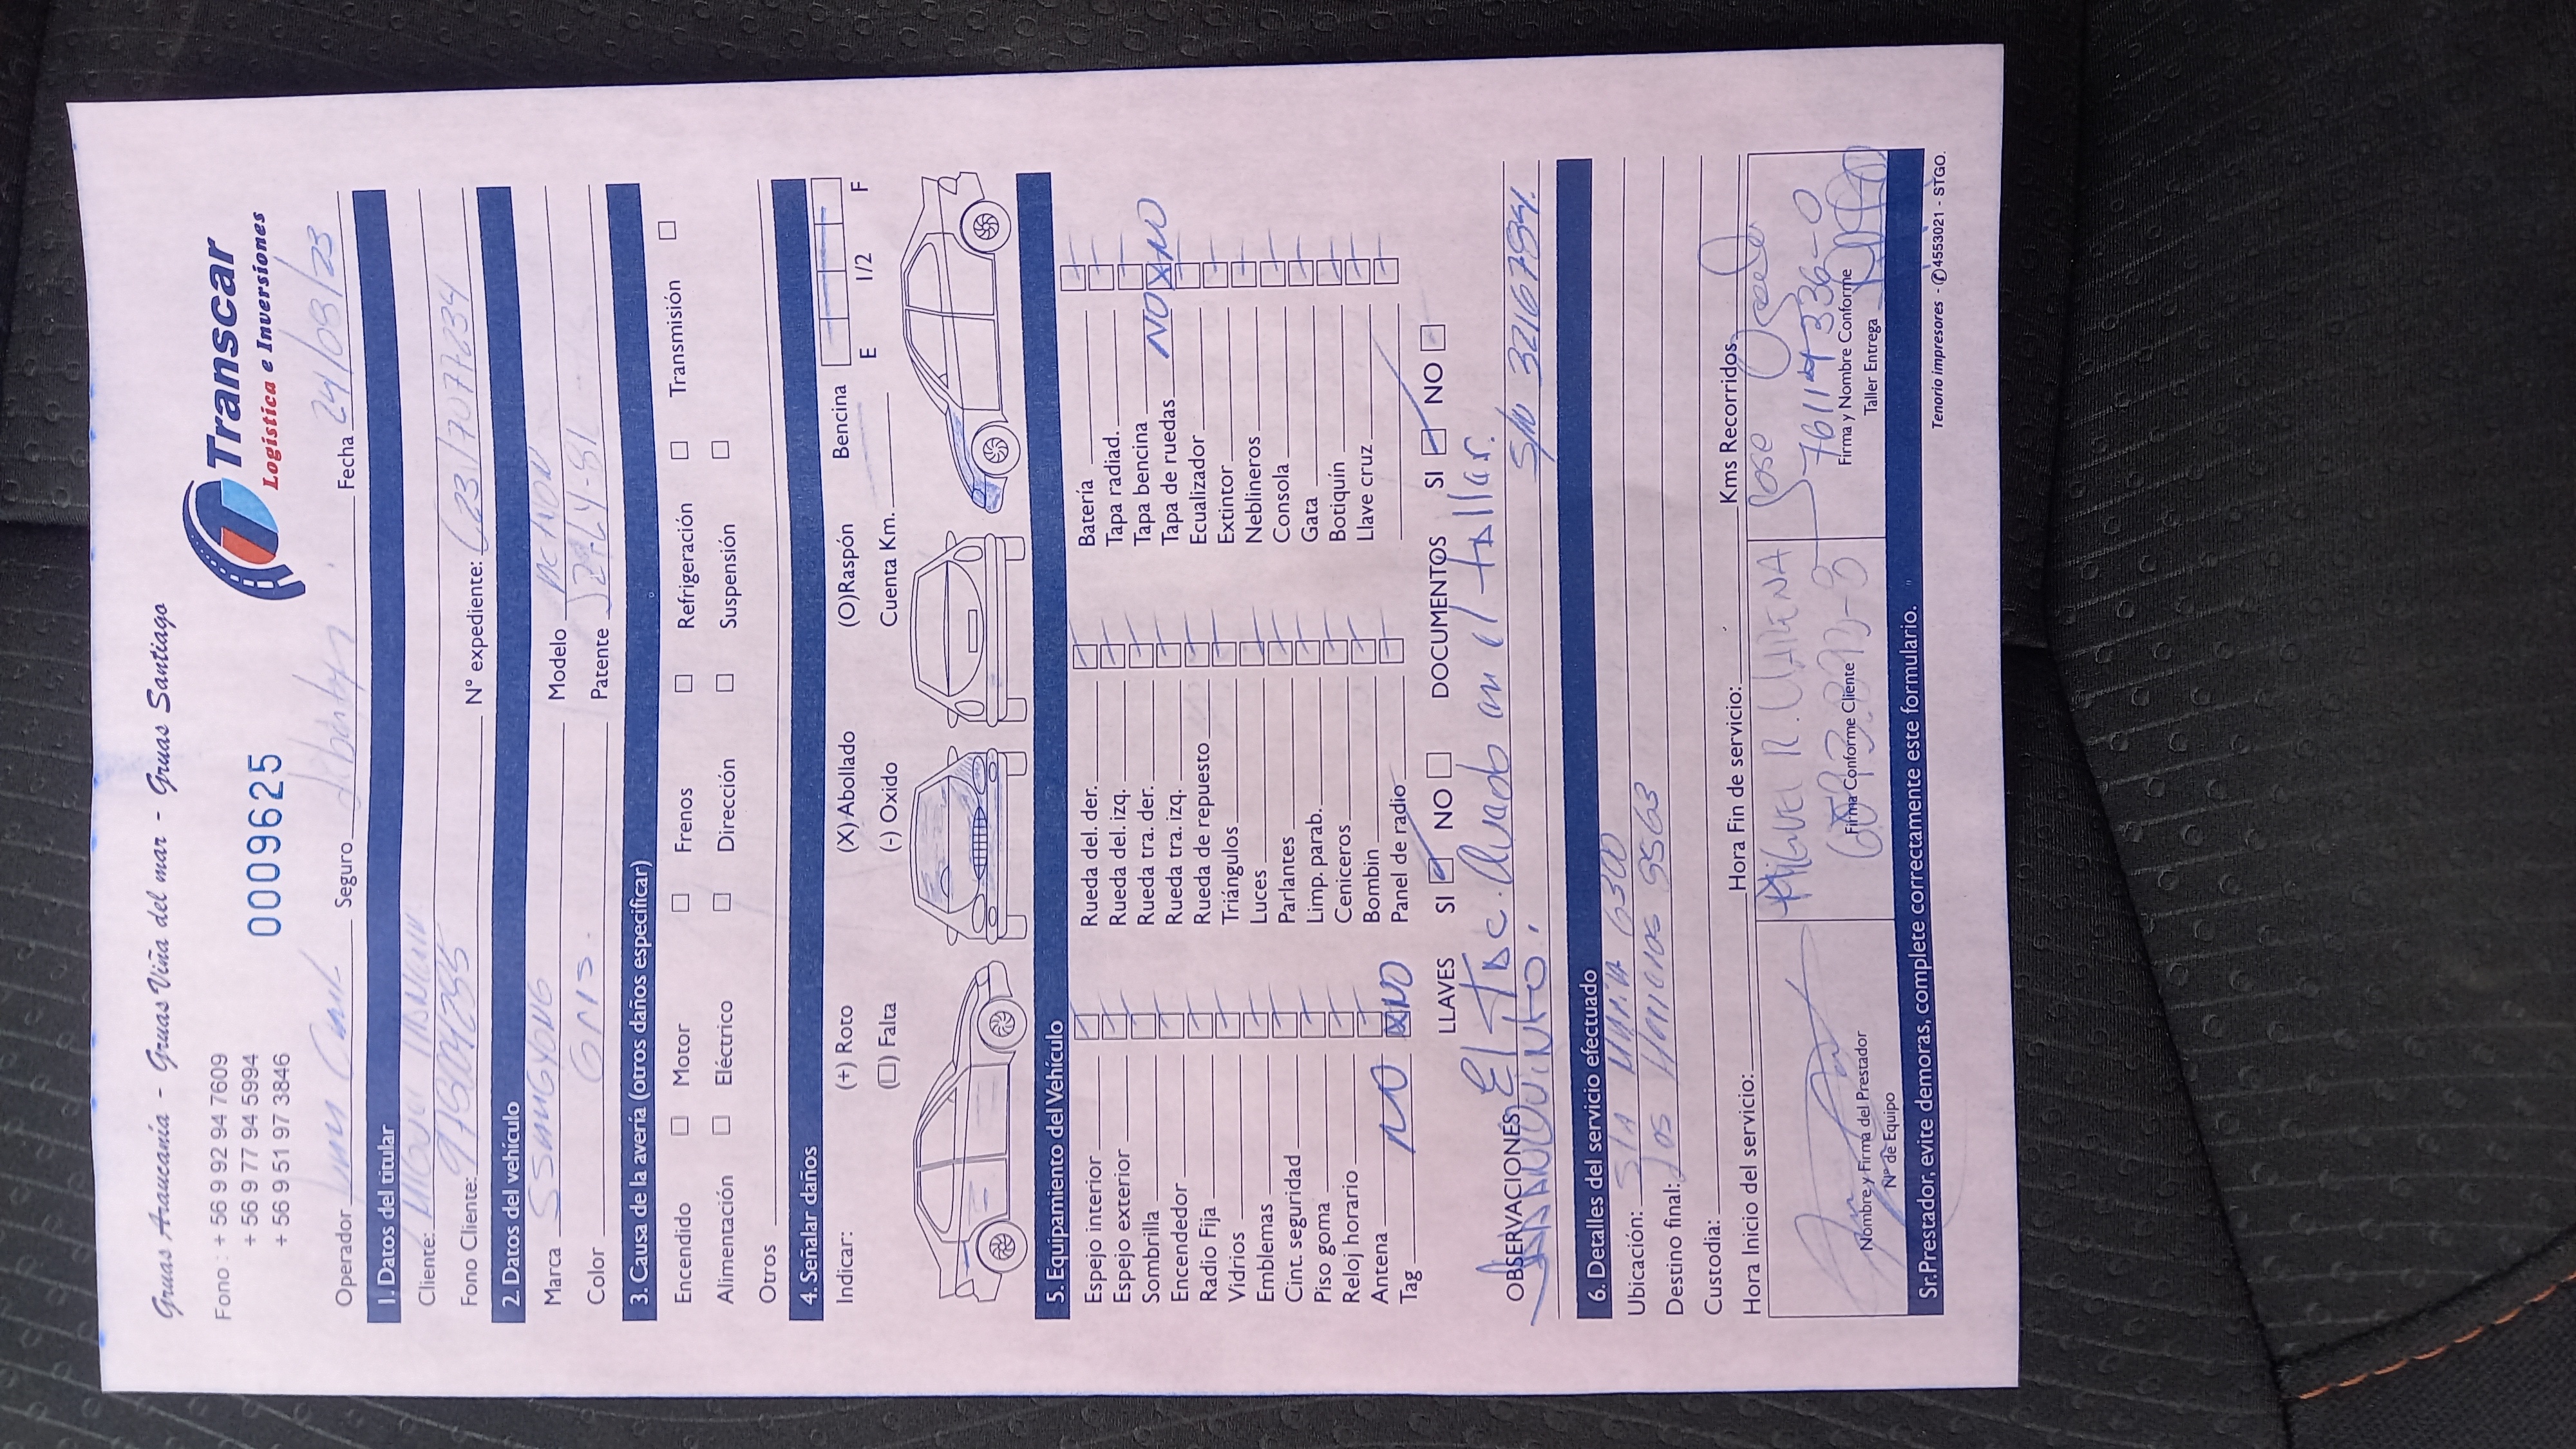 Gruas Araucanía - Gruas Viña del mar - Gruas Santiago
Fono : + 56 9 92 94 7609
+ 56 9 77 94 5994
+ 56 9 51 97 3846
0009625
Transcar
Logística e Inversiones
Operador Seguro Fecha 24/03/23
1. Datos del titular
Cliente: Miguel
Fono Cliente: N° expediente:
2. Datos del vehículo
Marca SSANGYONG Modelo ACTION
Color Gris. Patente
3. Causa de la avería (otros daños especificar)
Encendido Motor Frenos Refrigeración Transmisión
Alimentación Eléctrico Dirección Suspensión
Otros
4. Señalar daños
Indicar: (+) Roto (X) Abollado (O)Raspón Bencina
(□) Falta (-) Oxido Cuenta Km. E 1/2 F
5. Equipamiento del Vehículo
Espejo interior Rueda del. der. Batería
Espejo exterior Rueda del. izq. Tapa radiad.
Sombrilla Rueda tra. der. Tapa bencina
Encendedor Rueda tra. izq. Tapa de ruedas NO X NO
Radio Fija Rueda de repuesto Ecualizador
Vidrios Triángulos Extintor
Emblemas Luces Neblineros
Cint. seguridad Parlantes Consola
Piso goma Limp. parab. Gata
Reloj horario Ceniceros Botiquín
Antena Bombin Llave cruz
Tag NO X NO Panel de radio
LLAVES SI NO DOCUMENTOS SI NO
OBSERVACIONES El TAC. Quedo en el taller.
S/N 32167894.
6. Detalles del servicio efectuado
Ubicación: STA MARIA 6300
Destino final: Los 9563
Custodia:
Hora Inicio del servicio: Hora Fin de servicio: Kms Recorridos
Miguel R. Jose
76114336-0
Nombre y Firma del Prestador
N° de Equipo
Firma Conforme Cliente
Firma y Nombre Conforme
Taller Entrega
Sr. Prestador, evite demoras, complete correctamente este formulario.
Tenorio impresores - ✆4553021 - STGO.